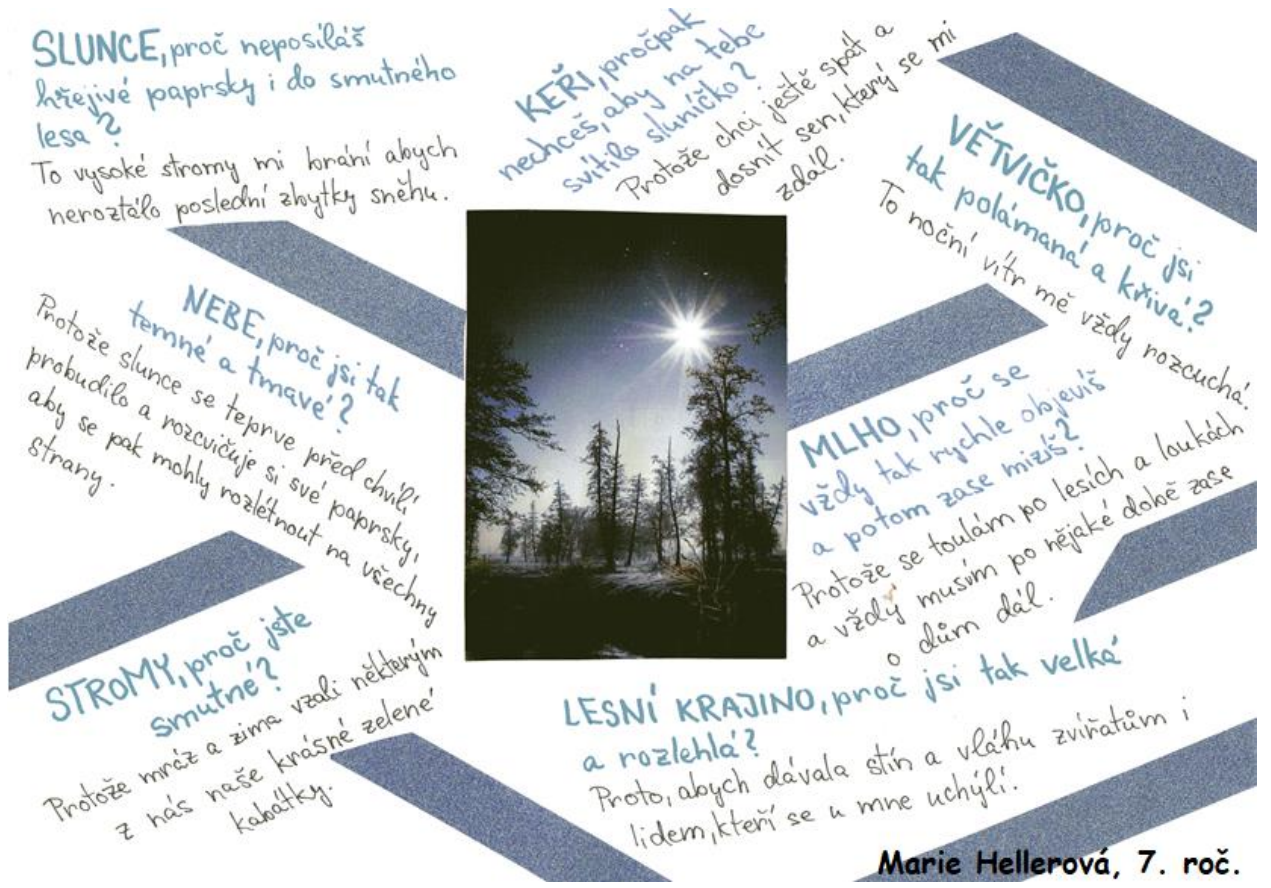 SLUNCE, proč neposíláš
hřejivé paprsky i do smutného
lesa?
To vysoké stromy mi brání abych
neroztálo poslední zbytky sněhu.
KEŘI, pročpak
nechceš, aby na tebe
svítilo sluníčko?
Protože chci ještě spát a
dosnít sen, který se mi
zdál.
VĚTVIČKO, proč jsi
tak polámaná a křivá?
To noční vítr mě vždy rozcuchá.
NEBE, proč jsi tak
temné a tmavé?
Protože slunce se teprve před chvílí
probudilo a rozcvičuje si své paprsky,
aby se pak mohly rozlétnout na všechny
strany.
MLHO, proč se
vždy tak rychle objevíš
a potom zase mizíš?
Protože se toulám po lesích a loukách
a vždy musím po nějaké době zase
o dům dál.
STROMY, proč jste
smutné?
Protože mráz a zima vzali některým
z nás naše krásné zelené
kabátky.
LESNÍ KRAJINO, proč jsi tak velká
a rozlehlá?
Proto, abych dávala stín a vláhu zvířatům i
lidem, kteří se u mne uchýlí.
Marie Hellerová, 7. roč.